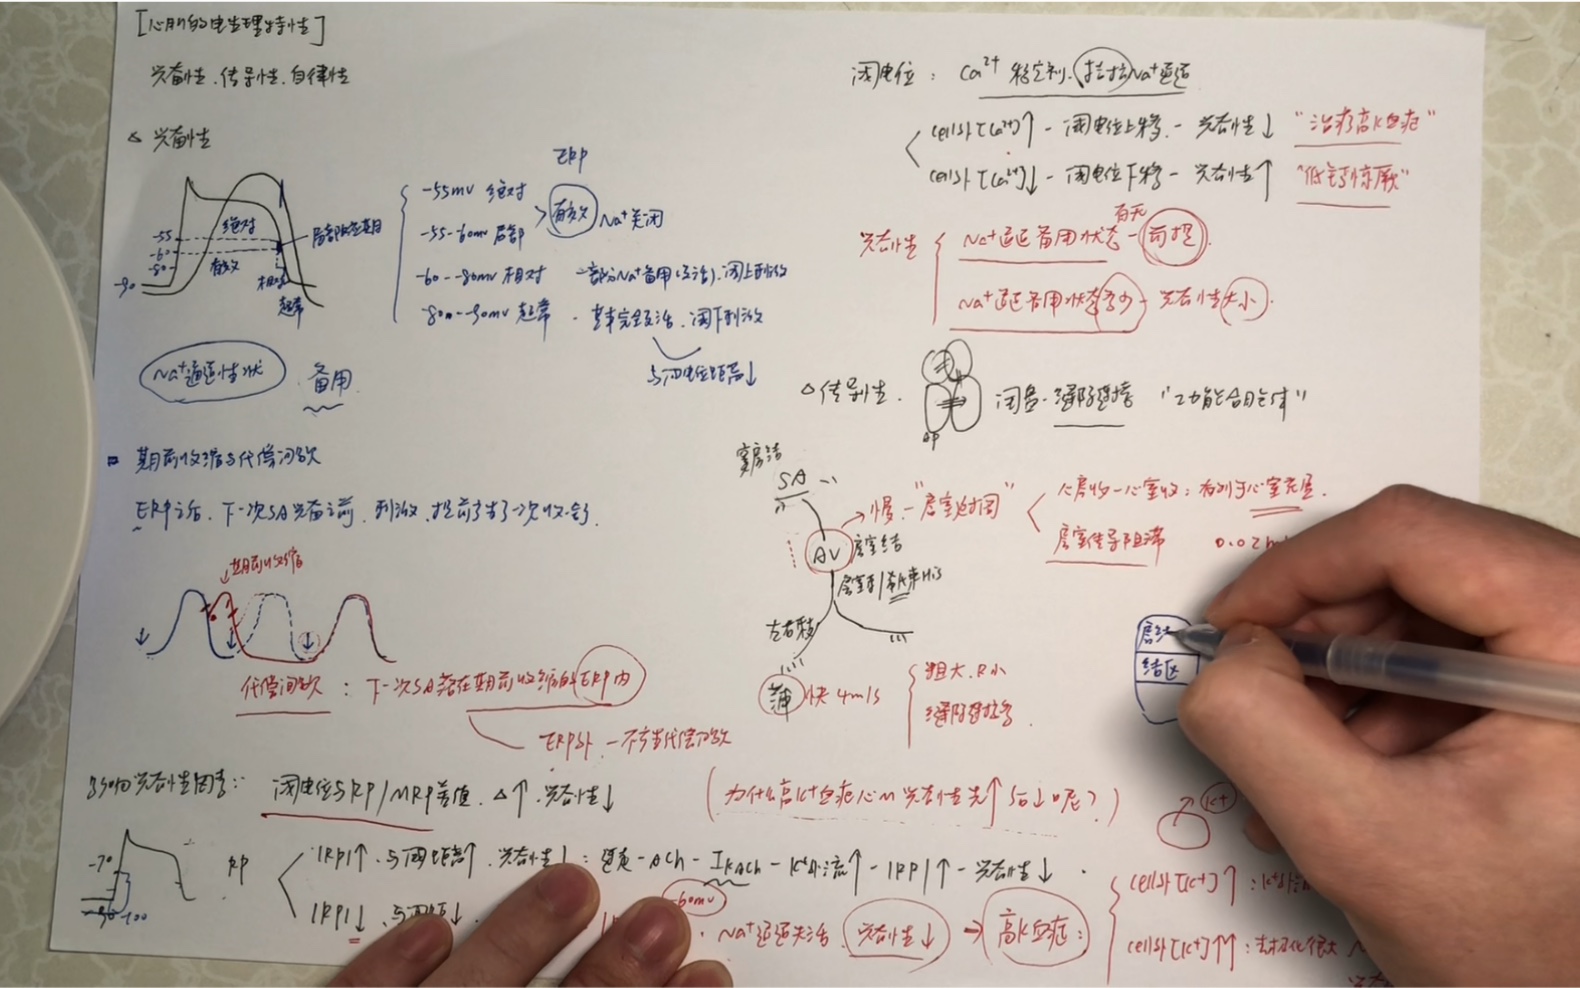 [心肌的电生理特性]
兴奋性、传导性、自律性
△ 兴奋性
-55
-60
-80
-90
绝对
有效
局部反应期
相对
超常
ERP
-55mv 绝对
-55--60mv 局部
有效 Na⁺关闭
-60--80mv 相对 一部分Na⁺备用(复活)、阈上刺激
-80--90mv 超常 - 基本完全复活、阈下刺激
与阈电位距离↓
Na⁺通道性状 备用
期前收缩与代偿间歇
ERP之后、下一次SA兴奋之前、刺激、提前产生了一次收缩
↓期前收缩
代偿间歇:下一次SA落在期前收缩的ERP内
ERP外 - 不产生代偿间歇
影响兴奋性因素:阈电位与RP/MRP差值、△↑、兴奋性↓
-70
-90
-100
RP
|RP|↑、与阈电距离↑、兴奋性↓:迷走-ACh-IKACh-K⁺外流↑-|RP|↑-兴奋性↓
|RP|↓、与阈距↓
-60mv
Na⁺通道失活、兴奋性↓ → 高K血症:
阈电位:Ca²⁺ 稳定剂、拮抗Na⁺通道
cell外[Ca²⁺]↑ - 阈电位上移 - 兴奋性↓ "治疗高K血症"
cell外[Ca²⁺]↓ - 阈电位下移 - 兴奋性↑ "低钙惊厥"
兴奋性
有无
Na⁺通道备用状态 - 前提
Na⁺通道备用状态多少 - 兴奋性大小
△传导性、
AP
闰盘-缝隙连接 "功能合胞体"
窦房结
SA
AV 房室结
慢 - "房室延搁"
心房收-心室收:有利于心室充盈
房室传导阻滞 0.02m
房室束/希氏束His
左右束支
蒲 快 4m/s
粗大、R小
缝隙连接多
房结
结区
(为什么高K⁺血症心M兴奋性先↑后↓呢?)
K⁺
cell外[K⁺]↑:K⁺外
cell外[K⁺]↑↑:去极化很大